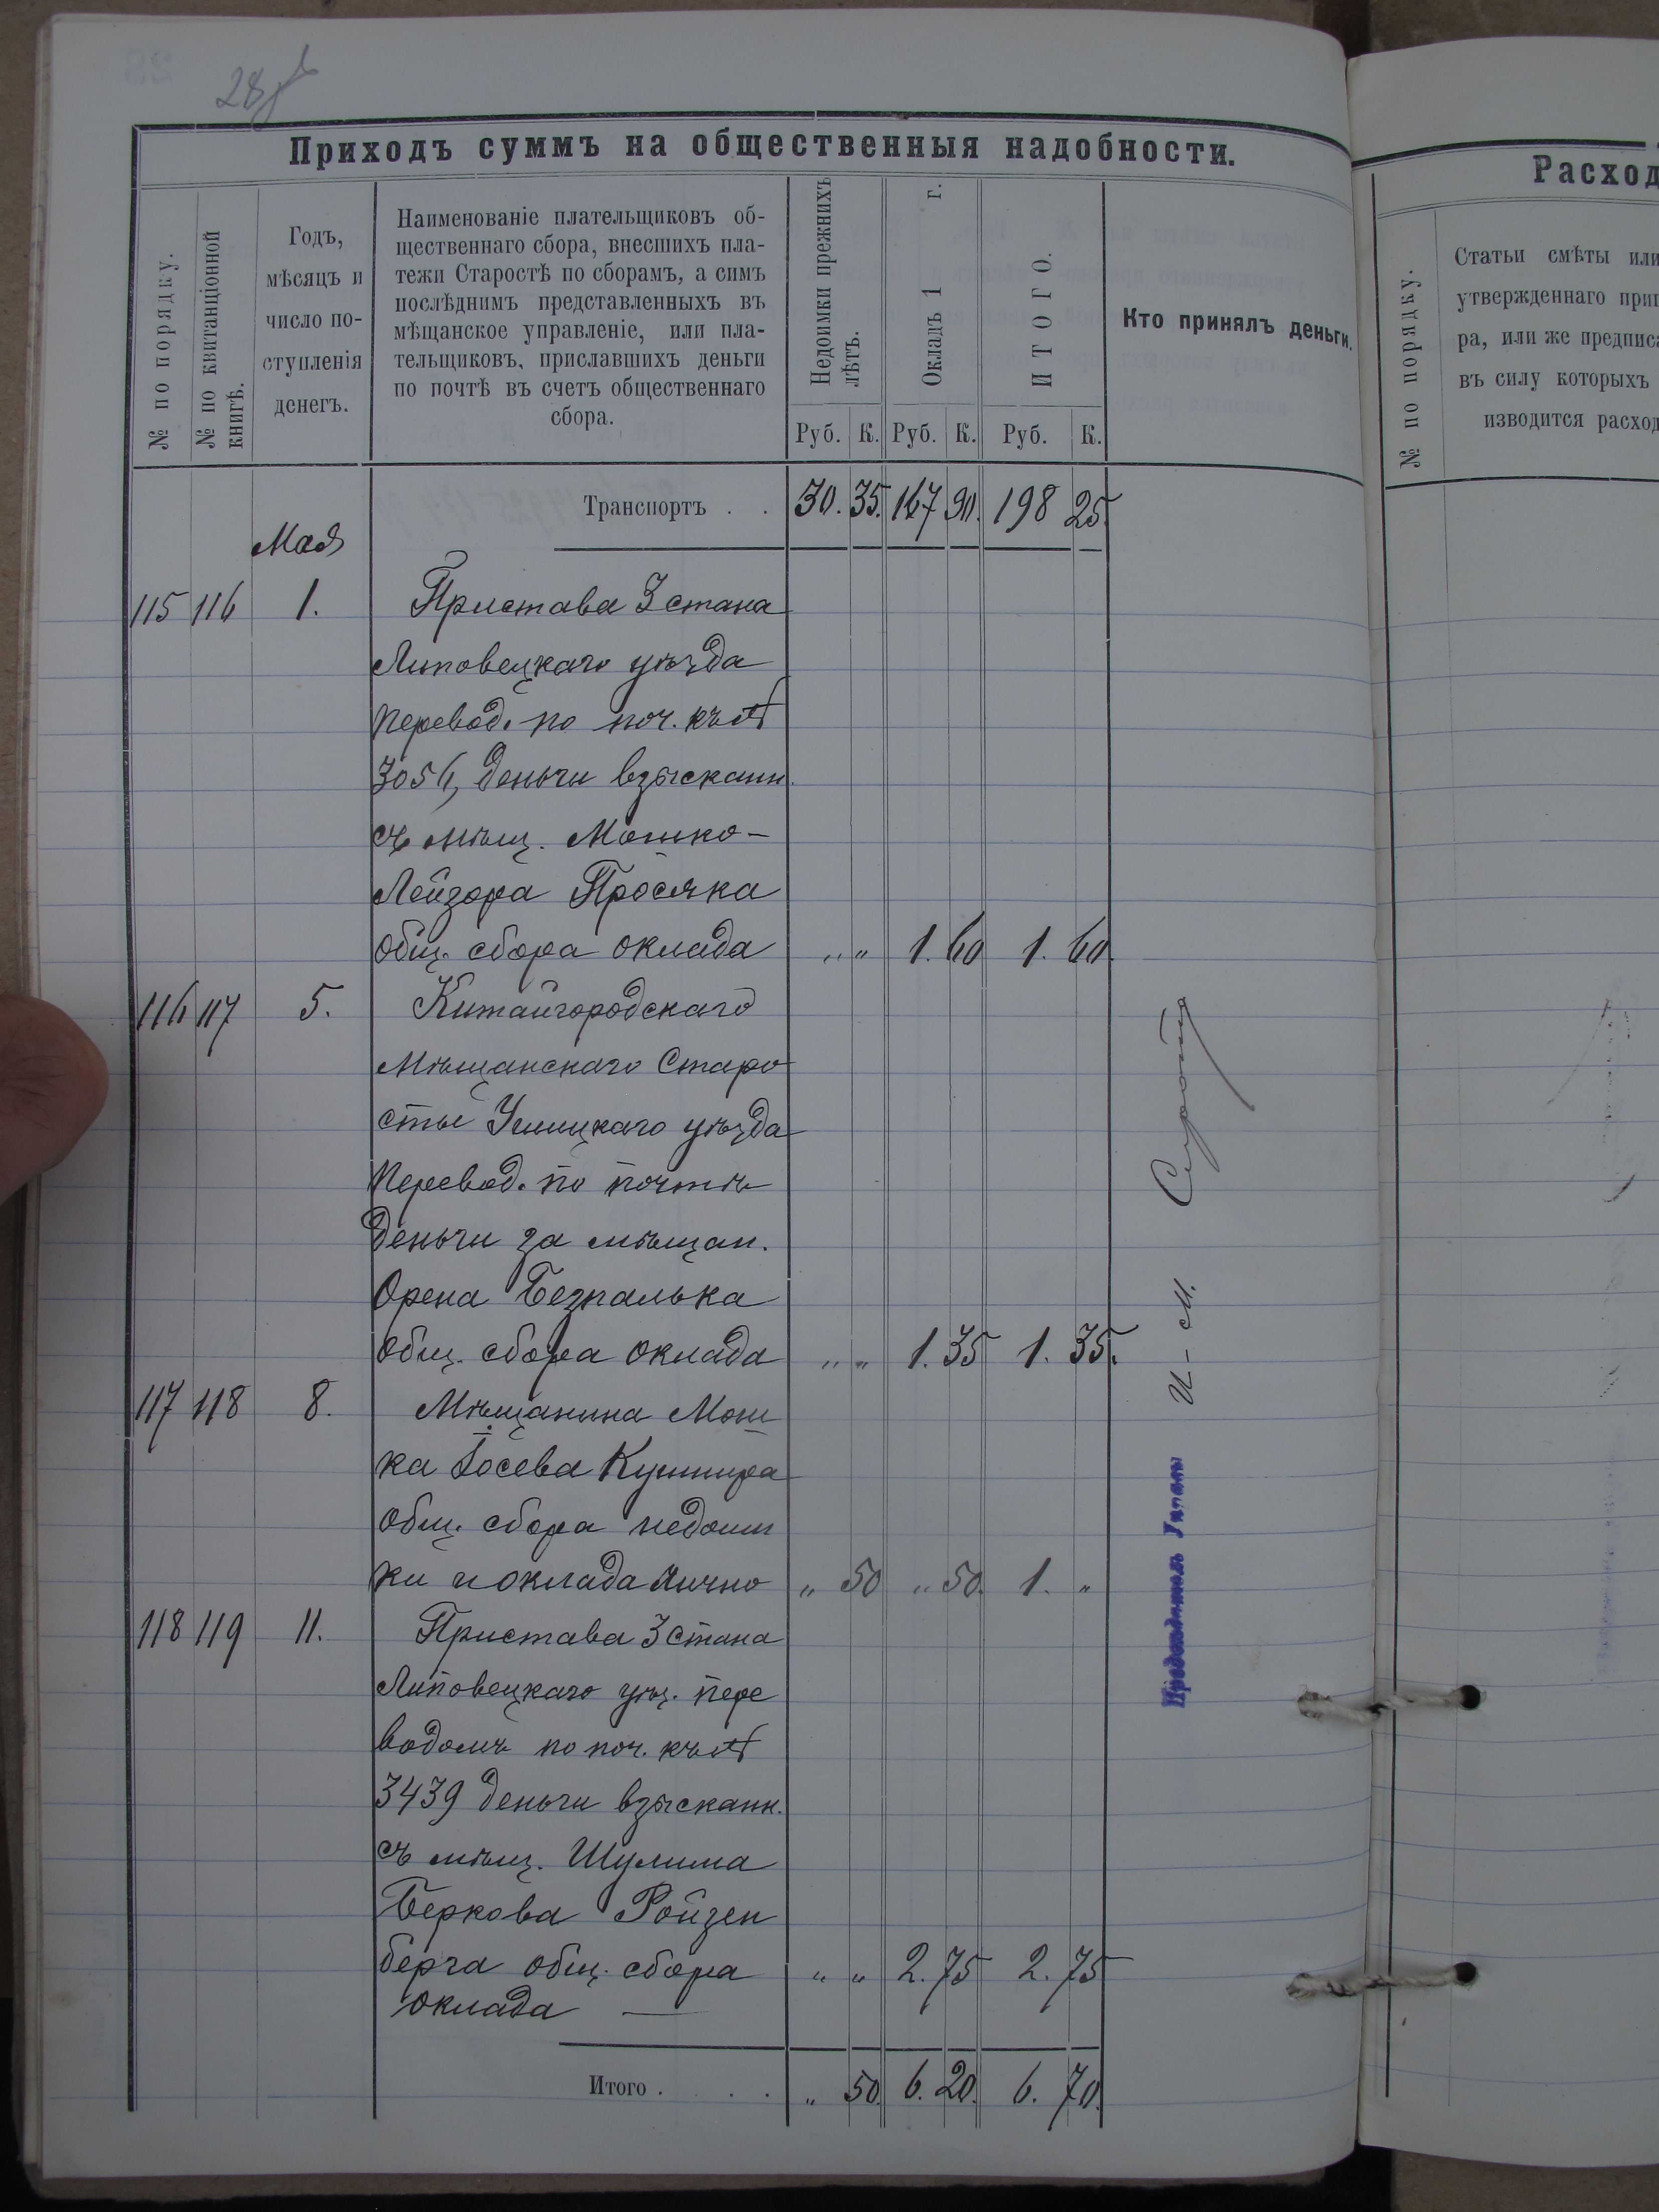 28
Приходъ суммъ на общественныя надобности.
№ по порядку.
№ по квитанціонной книгѣ.
Годъ,
мѣсяцъ и
число по-
ступленія
денегъ.
Наименованіе плательщиковъ об-
щественнаго сбора, внесшихъ пла-
тежи Старостѣ по сборамъ, а симъ
послѣднимъ представленныхъ въ
мѣщанское управленіе, или пла-
тельщиковъ, приславшихъ деньги
по почтѣ въ счетъ общественнаго
сбора.
Недоимки прежнихъ
лѣтъ.
Окладъ 1 г.
ИТОГО.
Кто принялъ деньги.
Руб. К. Руб. К. Руб. К.
Транспортъ . . 30. 35. 167 90. 198 25.
Мая
115 116 1. Пристава 3 стана
Липовецкаго уѣзда
перевод. по поч. къ №
3056, деньги взысканн.
съ мѣщ. Мошко-
Лейзора Просяка
общ. сбора оклада „ „ 1. 60 1. 60.
116 117 5. Китайгородскаго
Мѣщанскаго Старо
сты Ушицкаго уѣзда
перевод. по почтѣ
деньги за мѣщан.
Орена Безпалька
общ. сбора оклада „ „ 1. 35 1. 35.
117 118 8. Мѣщанина Мош
ка Іосева Кушнира
общ. сбора недоим
ки и оклада лично „ 50 „ 50. 1. „
118 119 11. Пристава 3 стана
Липовецкаго уѣз. пере
водомъ по поч. къ №
3439 деньги взысканн.
съ мѣщ. Шулима
Беркова Ройзен
берга общ. сбора „ „ 2. 75 2. 75
оклада —
Итого . . . „ 50. 6. 20. 6. 70.
И-М.
Расход
№ по порядку.
Статьи смѣты или
утвержденнаго при
ра, или же предпис
въ силу которыхъ
изводится расход